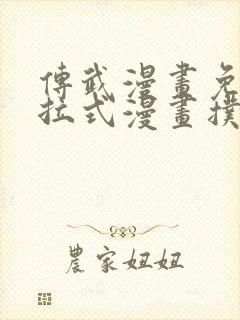 傅武漫畫免
拉式漫畫撲
農家妞妞